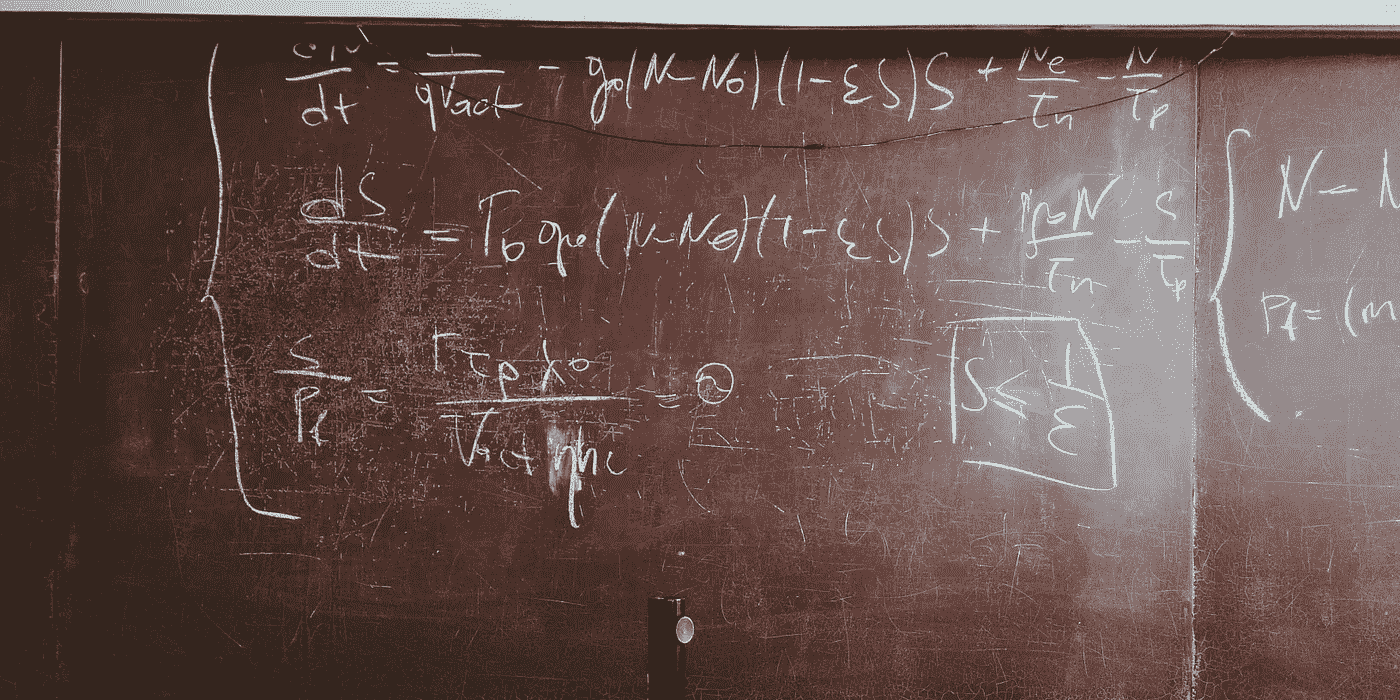 dN/dt = I/qVact - g₀(N-N₀)(1-εS)S + Ne/τn - N/τp
dS/dt = Γ₀g₀(N-N₀)(1-εS)S + N/τn - S/τp
S/Pf = Γτpλ₀/Vactηhc =
S ≤ 1/ε
N =
Pf = (m